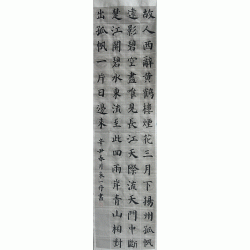 故人西辭黃鶴樓煙花三月下揚州孤帆
遠影碧空盡惟見長江天際流天門中斷
楚江開碧水東流至此回兩岸青山相對
出孤帆一片日邊來
春月 書